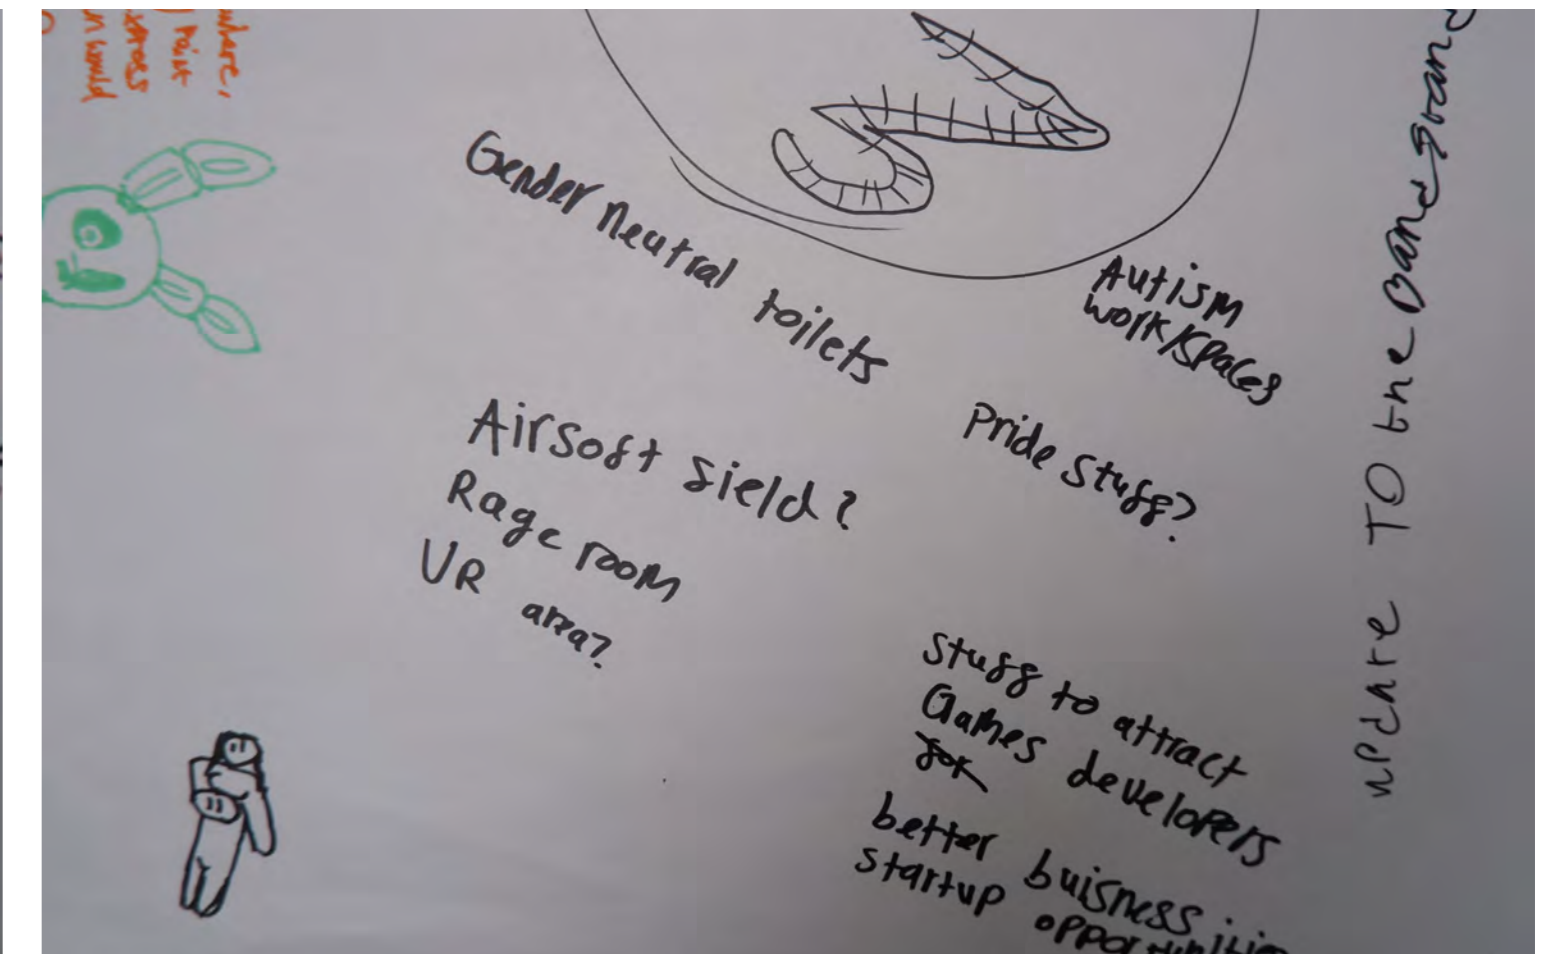 where,
Paint
would
Gender neutral toilets
Autism
work/spaces
Pride stuff?
Airsoft field?
Rage room
VR area?
stuff to attract
Games developers
for
better buisness
startup opportunities
update TO the Band stand